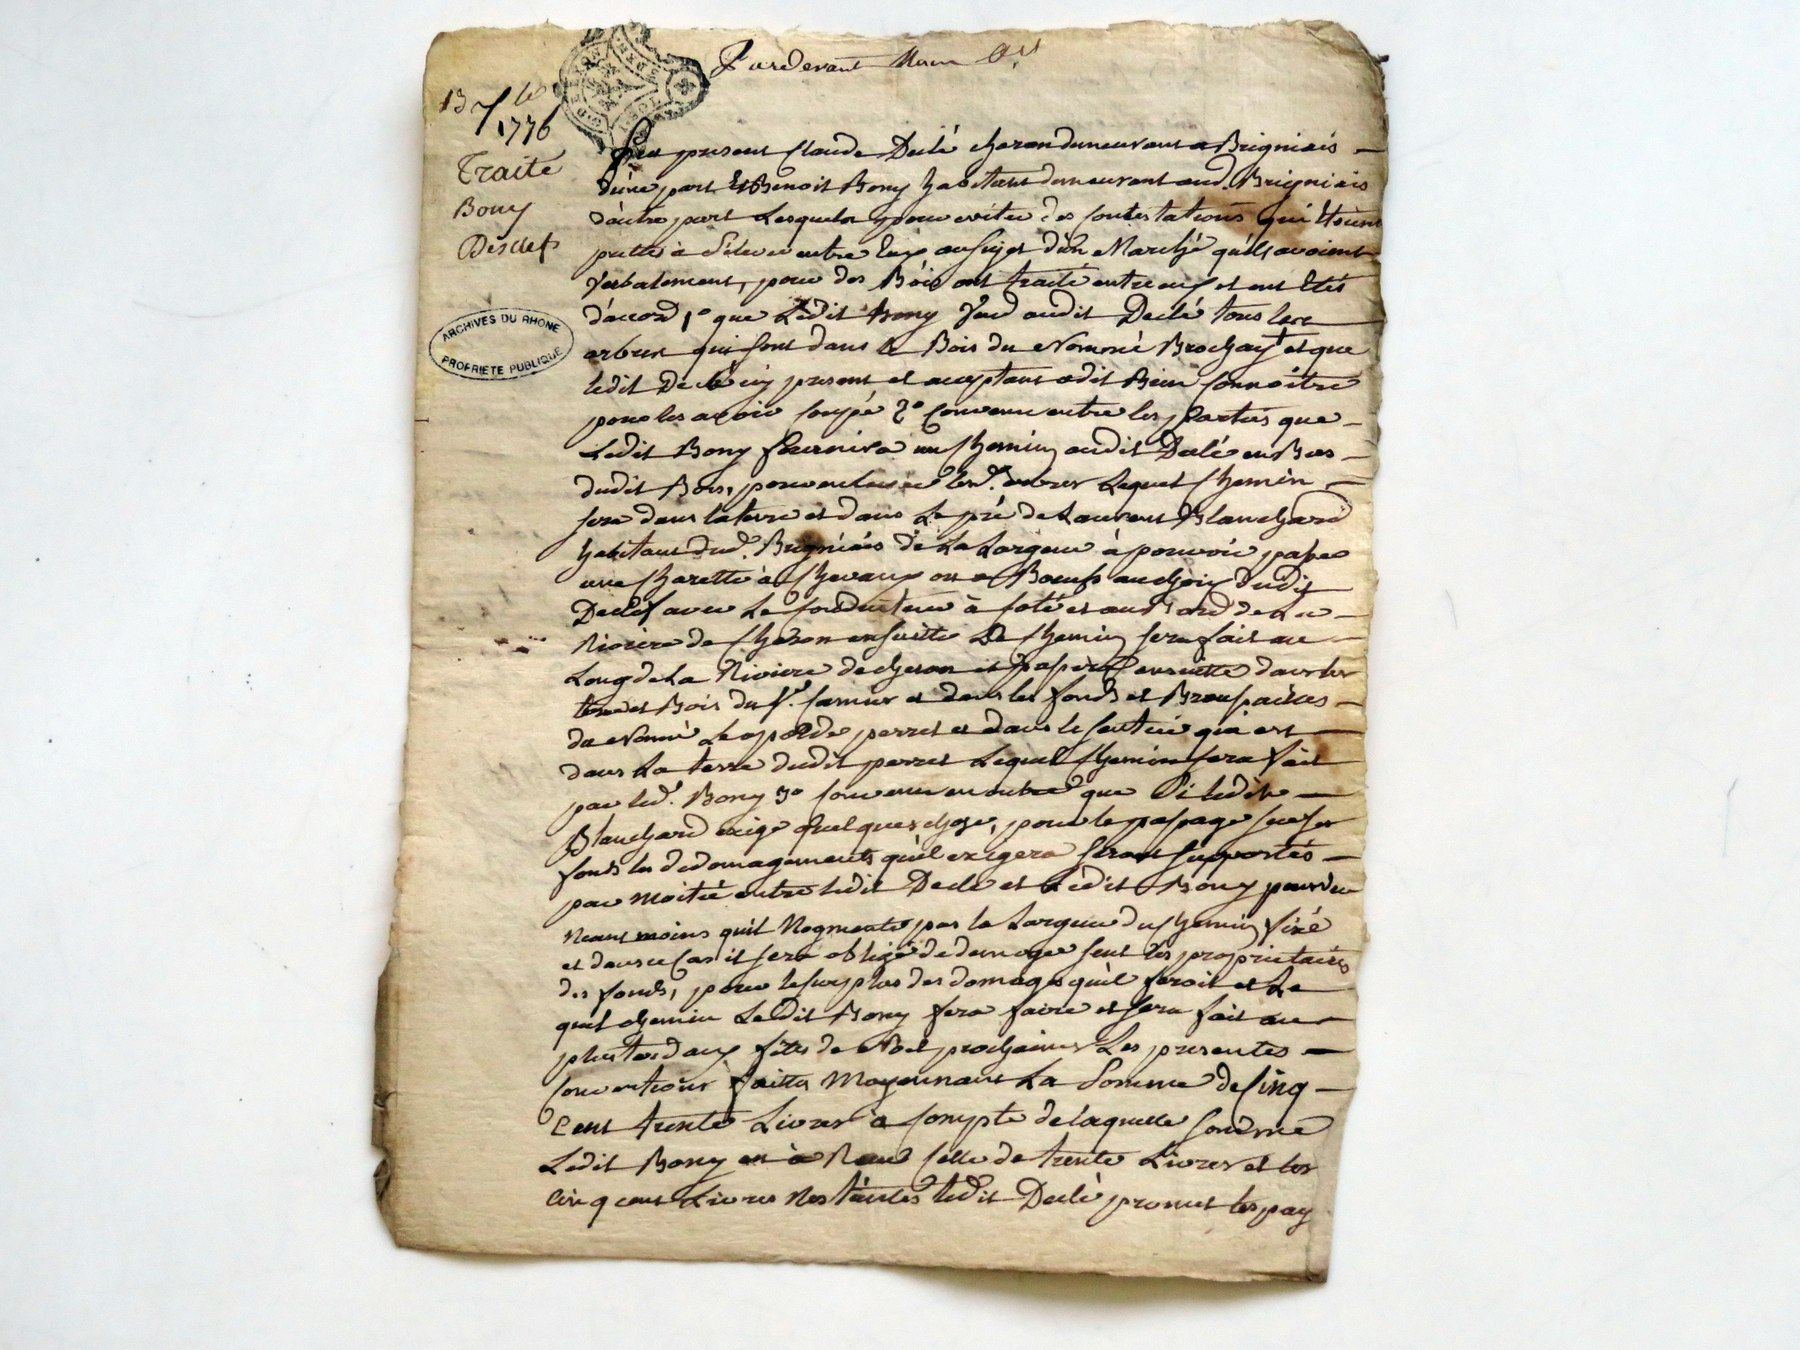 Pardevant
13 7bre
1776
Traité
Bony
Desclef
ARCHIVES DU RHONE
PROPRIETE PUBLIQUE
fut present Claude Declé charon demeurant a Brigniais
d'une part Et Benoit Bony habitant demeurant aud. Brigniais
d'autre part Lesquels pour eviter des Contestations qui étoient
prettes à s'élever entre Eux au sujet d'un Marché qu'ils avoient
Verbalement, pour des Bois ont traité entre eux et ont étés
d'accord 1° que Ledit Bony Vend audit Declé tous les
arbres qui sont dans le Bois du Nommé Brochay et que
ledit Declé icy present et acceptant a dit Bien Connoitre
pour les avoir Coupé 2° Convenu entre les parties que
Ledit Bony fournira un Chemin audit Declé en Bas
dudit Bois, pour enlever les d. arbres Lequel Chemin
sera dans la terre et dans Le pré de Laurent Blanchard
habitant dud. Brigniais de La Largeur à pouvoir passer
une Charette à Chevaux ou a Boeufs au choix Dudit
Declef avec Le Conducteur à Coté et au Bord de La
Riviere de Cheron ensuitte Le Chemin sera fait au
Long de La Riviere de cheron et passera ensuitte dans les
terre et Bois du Sr. Camus et dans les fonds et Broussailles
du Nommé Leopolde perret et dans le Sentier qui est
dans La terre dudit perret Lequel Chemin sera fait
par led. Bony 3° Convenu en outre que Si ledit
Blanchard exige quelques chose, pour le passage sur ses
fonds les dedomagements qu'il exigera seront Supportés
par Moitié entre ledit Declé et Ledit Bony pourvu
Neant moins qu'il N'augmente pas la Largeur du Chemin fixé
et dans ce Cas il sera obligé de dedomager seul les proprietaires
des fonds, pour le surplus des domages qu'il feroit et Le
quel chemin Ledit Bony fera faire et sera fait au
plus tard aux fêtes de Noel prochaines Les presentes
Conventions faittes Moyennant La Somme de Cinq
Cent trente Livres à Compte de laquelle Somme
Ledit Bony en à Reçu Celle de trente Livres et les
Cinq cent Livres Restantes ledit Declé promet les pay